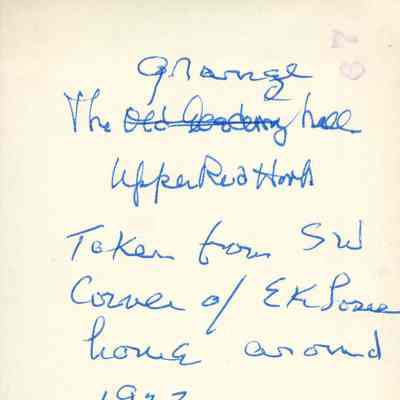 Grange
The Old Academy hall
Upper Red Hook
Taken from SW
Corner of EK Lo
home around